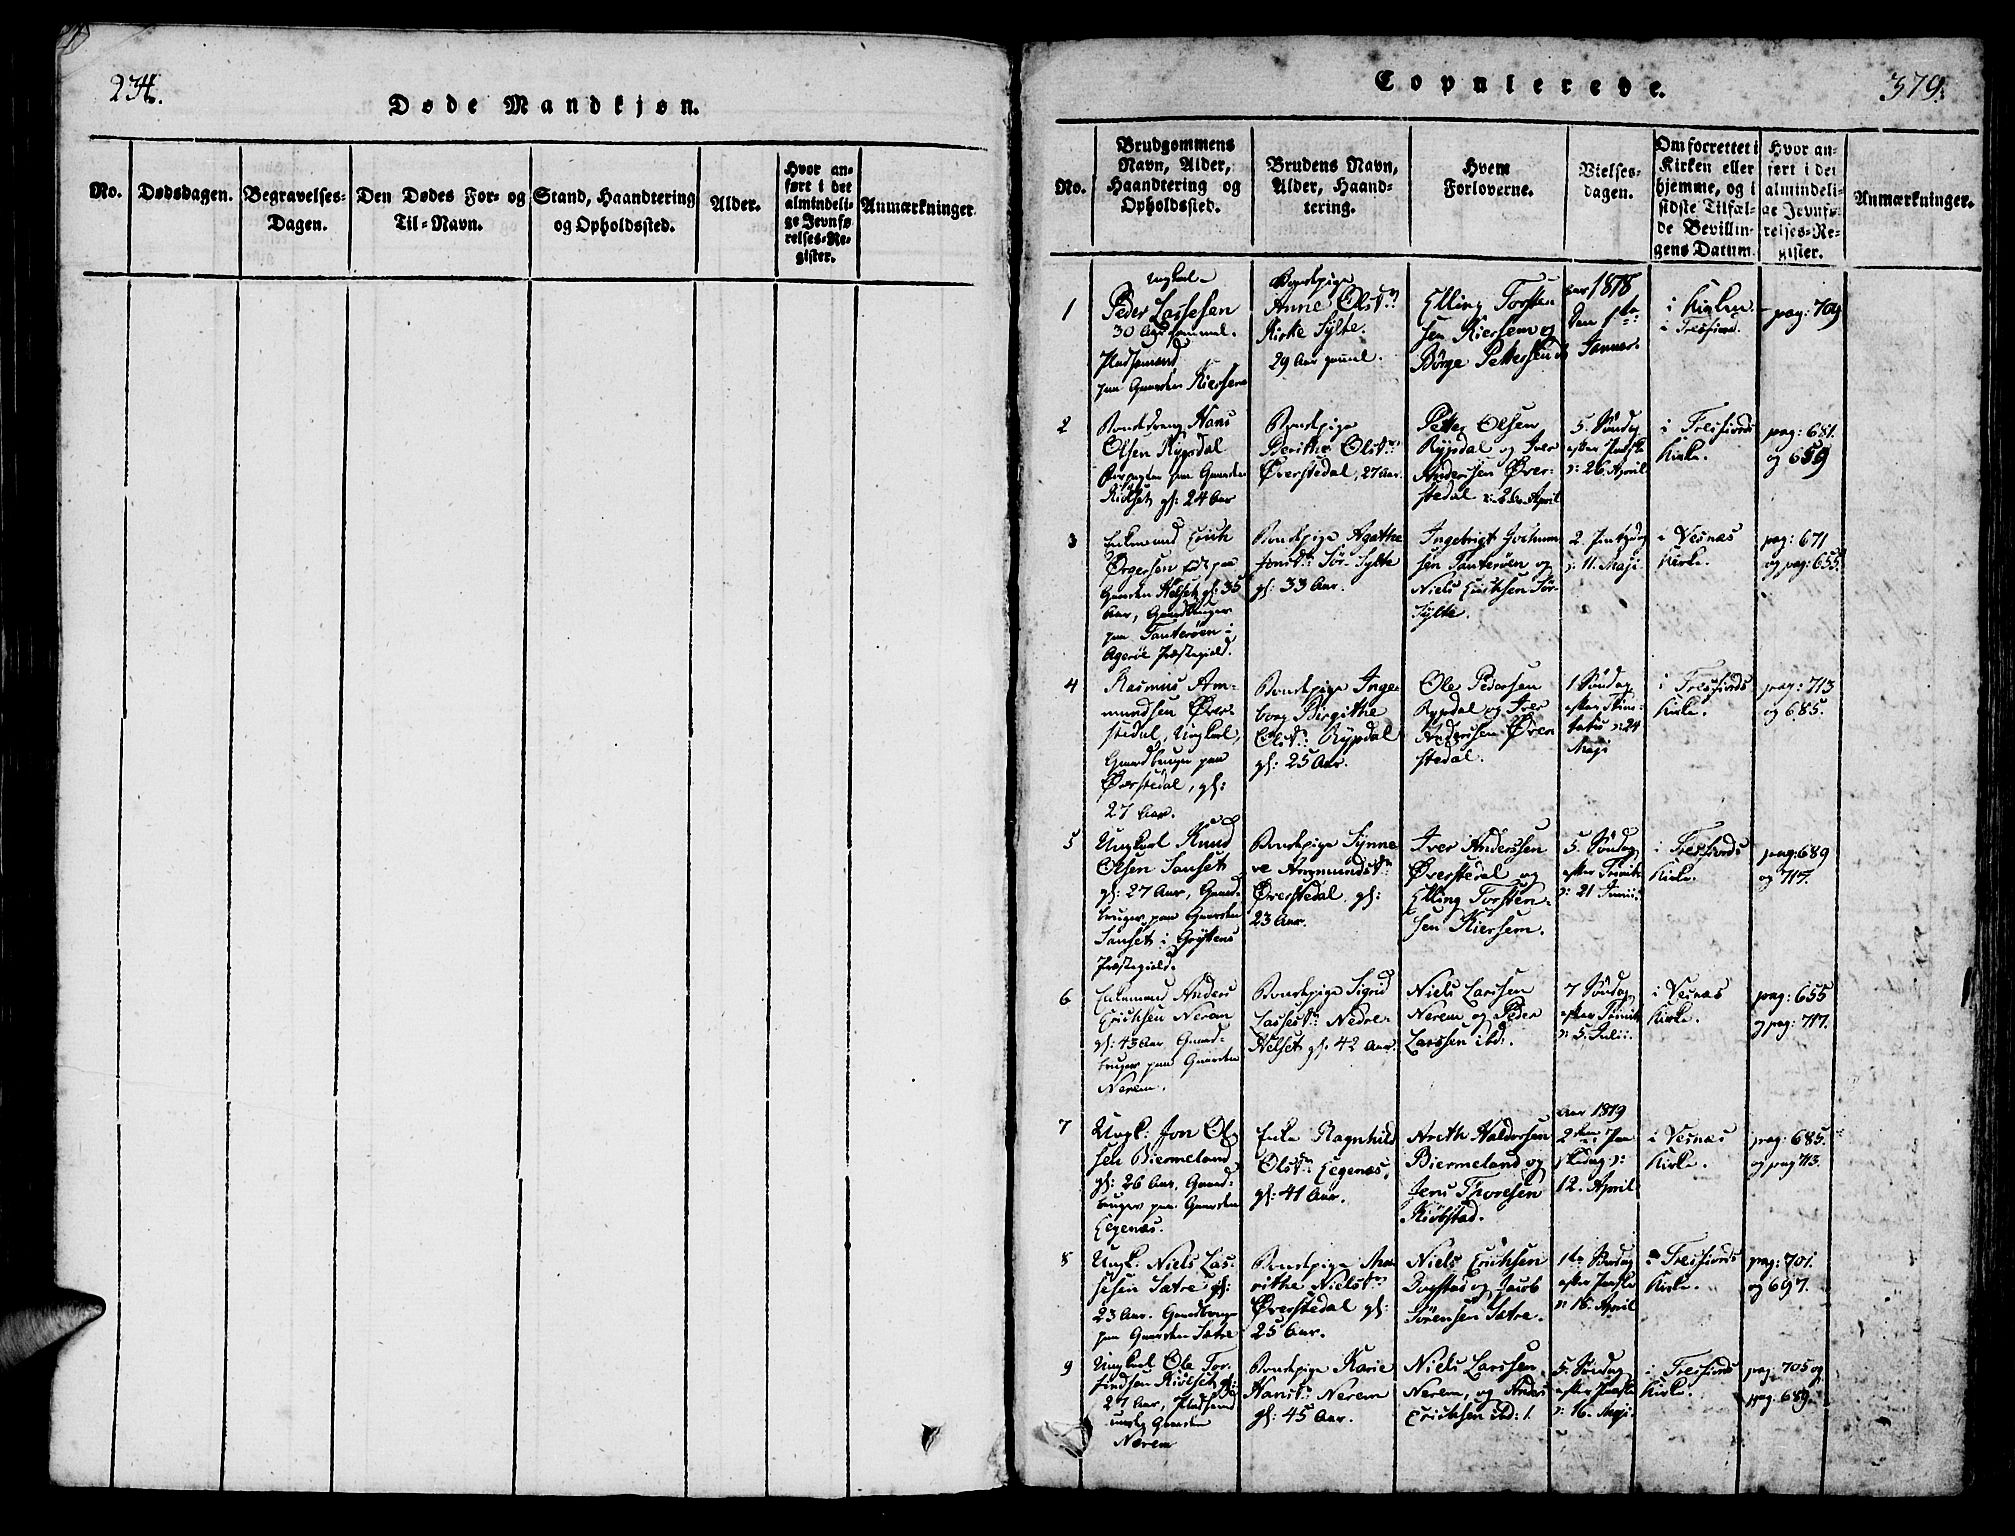 234.
Døde Mandkjøn.
No.
Dødsdagen.
Begravelses-
Dagen.
Den Dødes For- og
Til-Navn.
Stand, Haandtering
og Opholdssted.
Alder.
Hvor an-
ført i det
almindeli-
ge Jevnfø-
relses-Re-
gister.
Anmærkninger
Copulerede.
379.
No.
Brudgommens
Navn, Alder,
Haandtering og
Opholdssted.
Brudens Navn,
Alder, Haand-
tering.
Hvem
Forloverne.
Vielses-
dagen.
Om forrettet i
Kirken eller
hjemme, og i
sidste Tilfæl-
de Bevillin-
gens Datum.
Hvor an-
ført i det
almindeli-
ge Jevnfø-
relses-Re-
gister.
Anmærkninger.
1
Ungkarl
Peder Lassesen
30 Aar gammel.
Pladsmand
paa Gaarden Kiersem
Bondepige
Anne Olsdtr
Kirke Sylte.
29 Aar gammel.
Elling Torsten
sen Kiersem og
Børge Pettersen
Aar 1818
Den 1ste
Januar.
i Kirken
i Tresfiord.
pag: 709
2
Bondedreng Hans
Olsen Rypdal
paa Gaarden
gl: 24 Aar
Bondepige
Berithe Olsdtr
Øverstedal, 27 Aar.
Petter Olsen
Rypdal og Iver
Anderssen Øver-
stedal
5. Søndag
efter Paaske
26 April
i Tresfiords
Kirke.
pag: 681.
og 659
3
Enkemand Erich
Ørgersen født paa
Gaarden Helset gl: 35
Aar, Gaardbruger
paa Tanterøen i
Agerøe Præstegield.
Bondepige Agathe
Jonsdtr Sør-Sylte
gl: 33 Aar.
Ingebrigt Jochum
sen Tanterøen og
Niels Erichsen Sør-
Sylte.
2. Pintsedag
11. Maji
i Vesnæs
Kirke.
pag: 671
og pag: 655.
4
Rasmus Am-
mundsen Øver-
stedal, Ungkarl,
Gaardbruger paa
Øverstedal, gl:
27 Aar.
Bondepige Inge-
borg Birgithe
Olsdtr Rypdal
gl: 25 Aar.
Ole Pedersen
Rypdal og Iver
Anderssen Øver
stedal.
1 Søndag
efter Trini-
tatis 24
Maji
i Tresfiords
Kirke.
pag: 713
og 685.
5
Ungkarl Knud
Olsen Sanset
gl: 27 Aar, Gaard-
bruger paa Gaarden
Sanset i Gryttens
Præstegield.
Bondepige Synne
ve Ammundsdtr
Øverstedal, gl:
23 Aar.
Iver Anderssen
Øverstedal og
Elling Torsten-
sen Kiersem.
5. Søndag
efter Trinit:
21 Junii
i Tresfiords
Kirke.
pag: 689
og 717.
6
Enkemand Anders
Erichsen Nerem
gl: 43 Aar, Gaard-
bruger paa Gaarden
Nerem.
Bondepige Sigrid
Lassesdtr Nedre-
Helset gl. 42 Aar.
Niels Larssen
Nerem og Peder
Larssen ibd:.
7 Søndag
efter Trinit:
5. Julii.
i Vesnæs
Kirke.
pag: 655
og pag: 717.
7
Ungk: Jon Ol
sen Biermeland
gl: 26 Aar, Gaard-
bruger paa Gaarden
Eegenæs.
Enke Ragnhild
Olsdtr Eegenæs,
gl: 41 Aar.
Areth Haldorsen
Biermeland og
Jens Thoresen
Kiøbstad.
Aar 1819
2den Paa
skedag
12. April
i Vesnæs
Kirke.
pag: 685.
og pag 713.
8
Ungk. Niels Las-
sesen Sætre gl:
23 Aar. Gaardbruger
paa Gaarden Sætre
Bondepige Ma-
rithe Nielsdtr
Øverstedal gl:
25 Aar.
Niels Erichsen
Daugstad og Jacob
Sørensen Sætre.
1ste Søndag
efter Paaske
18. April
i Tresfiords
Kirke.
pag: 701.
og 697.
9
Ungkarl Ole Tor-
findsen
27 Aar, Pladsmand
under Gaarden
Nerem
Bondepige Karie
Hansdtr Nerem
gl: 45 Aar.
Niels Larssen
Nerem, og Anders
Erichsen ibd:
5. Søndag
efter Paaske
16. Maji.
i Tresfiords
Kirke.
pag: 705 og
pag: 689.